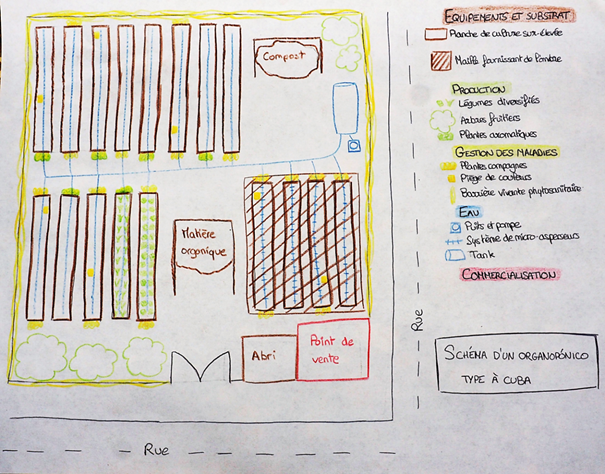 Compost
Matière
organique
Abri
Point de
vente
Rue
Rue
EQUIPEMENTS ET SUBSTRAT
Planche de culture sur-élevée
Maille fournissant de l'ombre
PRODUCTION
Légumes diversifiés
Arbres fruitiers
Plantes aromatiques
GESTION DES MALADIES
Plantes compagnes
Piège de couleurs
Barrière vivante phytosanitaire
EAU
Puits et pompe
Système de micro-asperseurs
Tank
COMMERCIALISATION
SCHÉMA D'UN ORGANOPÓNICO
TYPE À CUBA